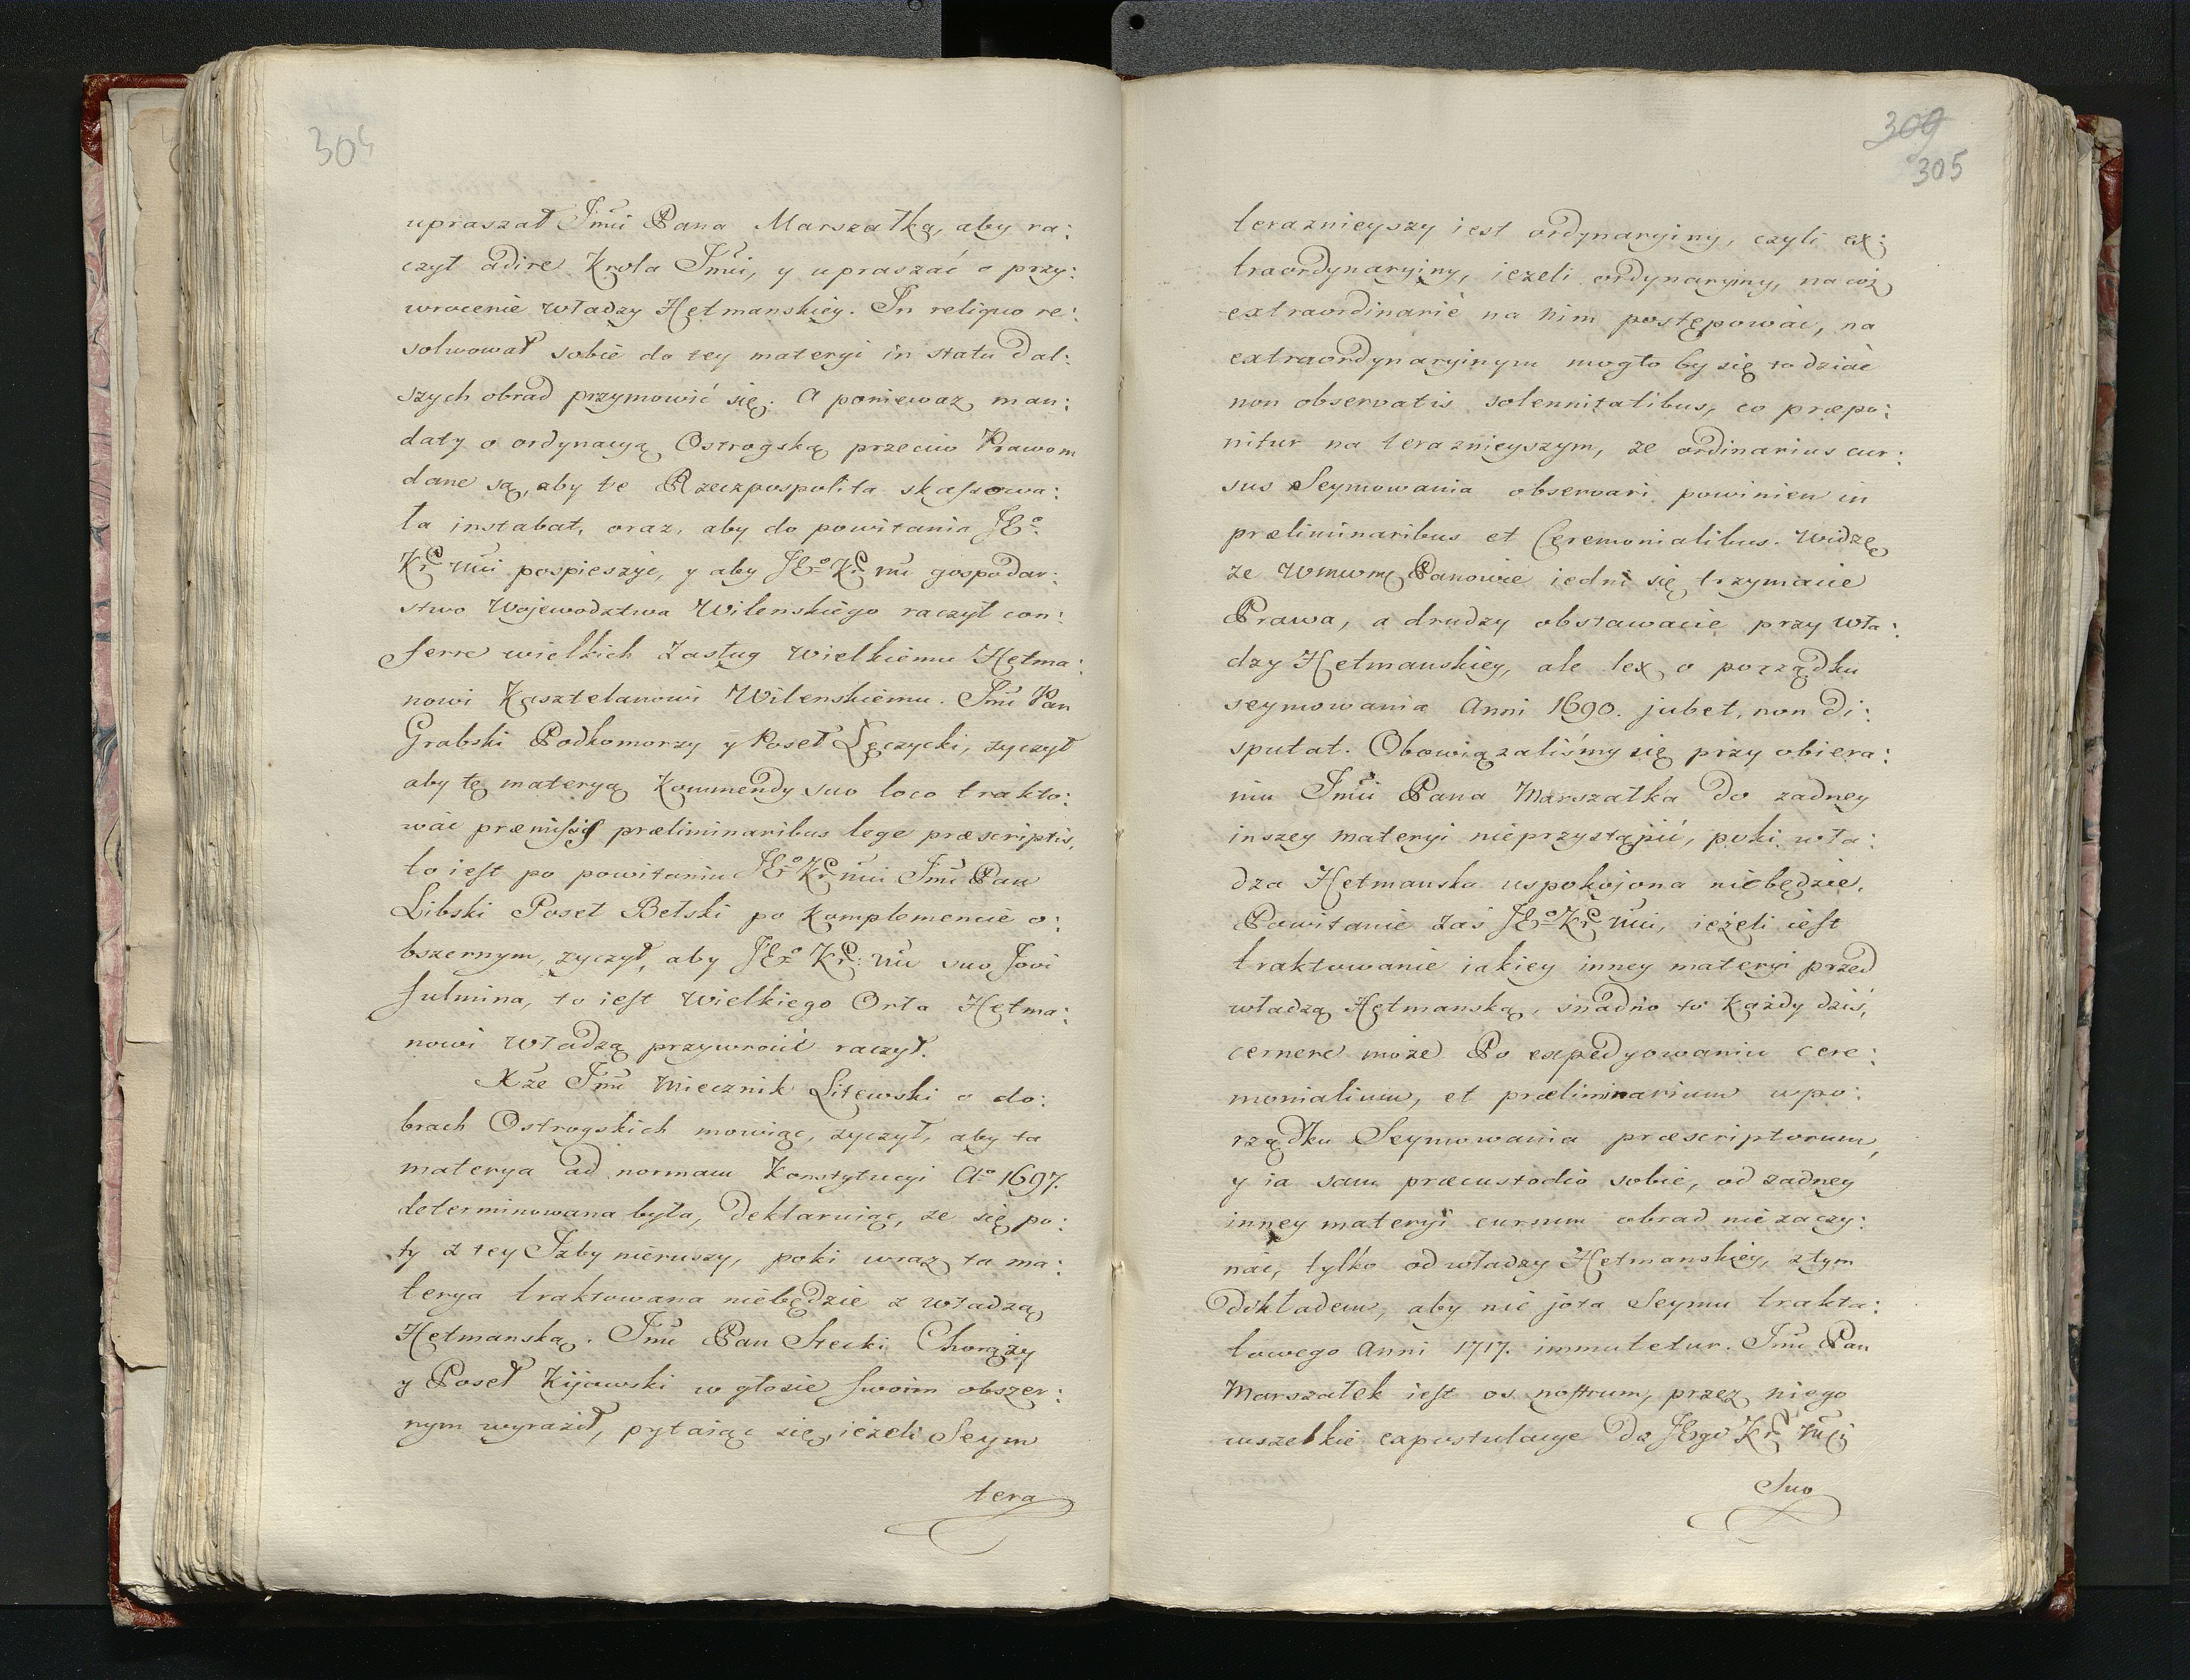 304
upraszał Jmci Pana Marszałka, aby ra:
czył adire Krola Jmci, y upraszać o przy:
wrocenie władzy Hetmanskiey. In reliquo re:
solwował sobie do tey materyi in statu dal:
szych obrad przymowić się. A poniewaz man:
daty o ordynacyą Ostrogską przeciw Prawom
dane są, aby te Rzeczpospolita skassowa:
ła instabat, oraz, aby do powitania JEo
Kr Mci pospieszyć, y aby JEo Kr Mć gospodar:
stwo Wojewodztwa Wilenskiego raczył con:
ferre wielkich Zasług Wielkiemu Hetma:
nowi Kasztelanowi Wilenskiemu. Jmć Pan
Grabski Podkomorzy y Poseł Łęczycki, zyczył
aby tę materyą Kommendy suo loco trakto:
wać præmissis præliminaribus lege præscriptis,
to iest po powitaniu JEo Kr Mci Jmć Pan
Libski Poseł Bełski po komplemencie o:
bszernym, zyczył, aby JEo Kr: Mć suo Jovi
fulmina, to iest Wielkiego Orła Hetma:
nowi Władzą przywroić raczył.
Xże Jmć Miecznik Litewski o do:
brach Ostrogskich mowiąc, zyczył, aby ta
materya ad normam Konstytucyi Ao 1697.
determinowana była, deklaruiąc, ze się po:
ty z tey Izby nieruszy, poki wraz ta ma:
terya traktowana niebędzie z władzą
Hetmanską. Jmć Pan Stecki Chorąży
y Poseł Kijowski w głosie swoim obszer:
nym wyraził, pytaiąc się, ieżeli Seym
tera
309
305
terazniejszy iest ordynaryiny, czyli ex:
traordynaryiny, iezeli ordynaryiny, na coż
extraordinarié na nim postępować, na
extraordynaryinym mogło by się to dziać
non observatis solennitatibus, co præpo:
nitur na terazniejszym, ze ordinarius cur:
sus Seymowania observari powinien in
præliminaribus et Ceremonialibus. Widzę
ze Wmwm Panowie iedni się trzymacie
Prawa, a drudzy obstawacie przy wła:
dzy Hetmanskiey, ale lex o porządku
seymowania Anni 1690. jubet, non di:
sputat. Obowiązaliśmy się przy obiera:
niu Jmci Pana Marszałka do zadney
inszey materyi nieprzystąpić, poki wła:
dza Hetmanska uspokojona niebędzie.
Powitanie zaś JEo Kr Mci, ieżeli iest
traktowanie iakiey inney materyi przed
władzą Hetmanską, snadno to każdy dzis,
cernere może Po expedyowaniu cere:
monialium, et præliminarium w po:
rządku Seymowania præscriptorum,
y ia sam præcustodio sobie, od zadney
inney materyi cursum obrad nie zaczy:
nać, tylko od władzy Hetmanskiey, z tym
dokładem, aby nie jota Seymu trakta:
towego Anni 1717. immutetur. Jmć Pan
Marszałek iest os nostrum, przez niego
wszelkie expostulacye do JEgo Kr Mci
Suo